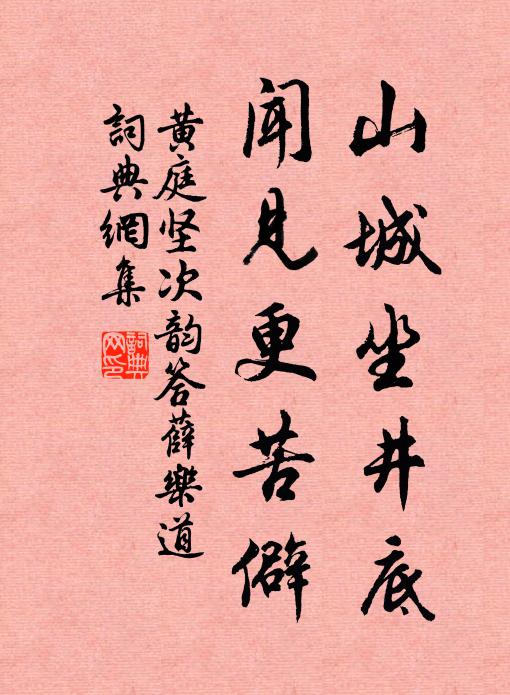 山城坐井底
闻见更苦僻
黄庭坚次韵答薛樂道
词典網集
詞典网印